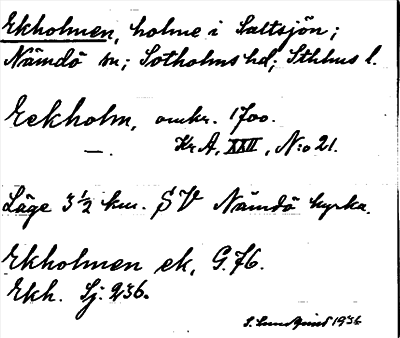 Ekholmen, holme i Saltsjön;
Nämdö sn; Sotholms hd; Sthlms l.
Eckholm, omkr. 1700.
— . Kr A, XXII, N:o 21.
Läge 3 ½ km. SV Nämdö kyrka.
Ekholmen ek, G. 76.
Ekh. Sj. 236.
S. Lundquist 1936